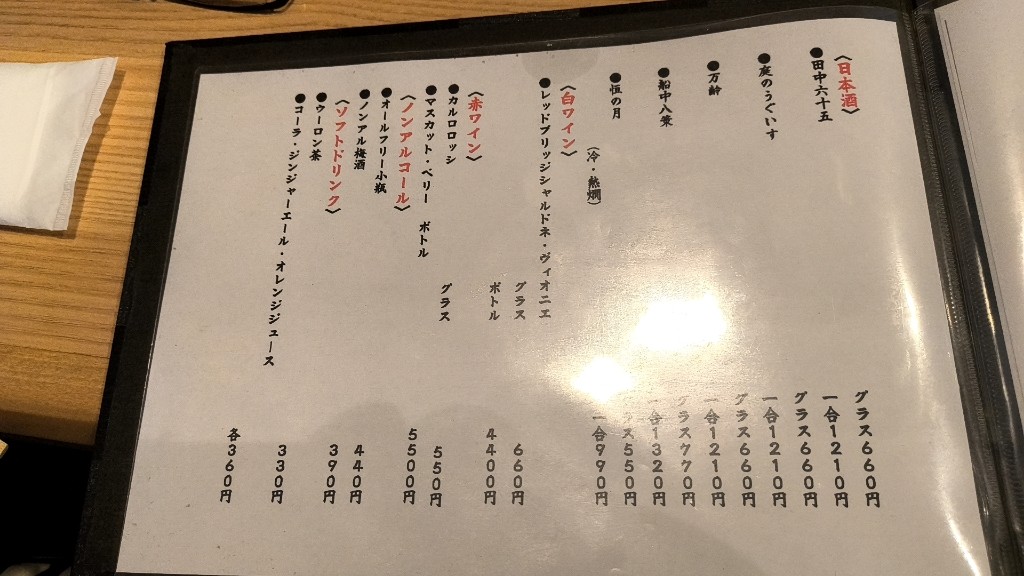 〈日本酒〉
●田中六十五
グラス660円
一合1210円
●庭のうぐいす
グラス660円
一合1210円
●万齢
グラス660円
一合1210円
●船中八策
グラス770円
一合1320円
●恒の月
ス550円
(冷・熱燗)
一合990円
〈白ワイン〉
●レッドブリッジシャルドネ・ヴィオニエ
グラス 660円
ボトル 4400円
〈赤ワイン〉
●カルロロッシ
グラス 550円
●マスカット・ベリー ボトル 5500円
〈ノンアルコール〉
●オールフリー小瓶 440円
●ノンアル梅酒 390円
〈ソフトドリンク〉
●ウーロン茶 330円
●コーラ・ジンジャーエール・オレンジジュース
各360円